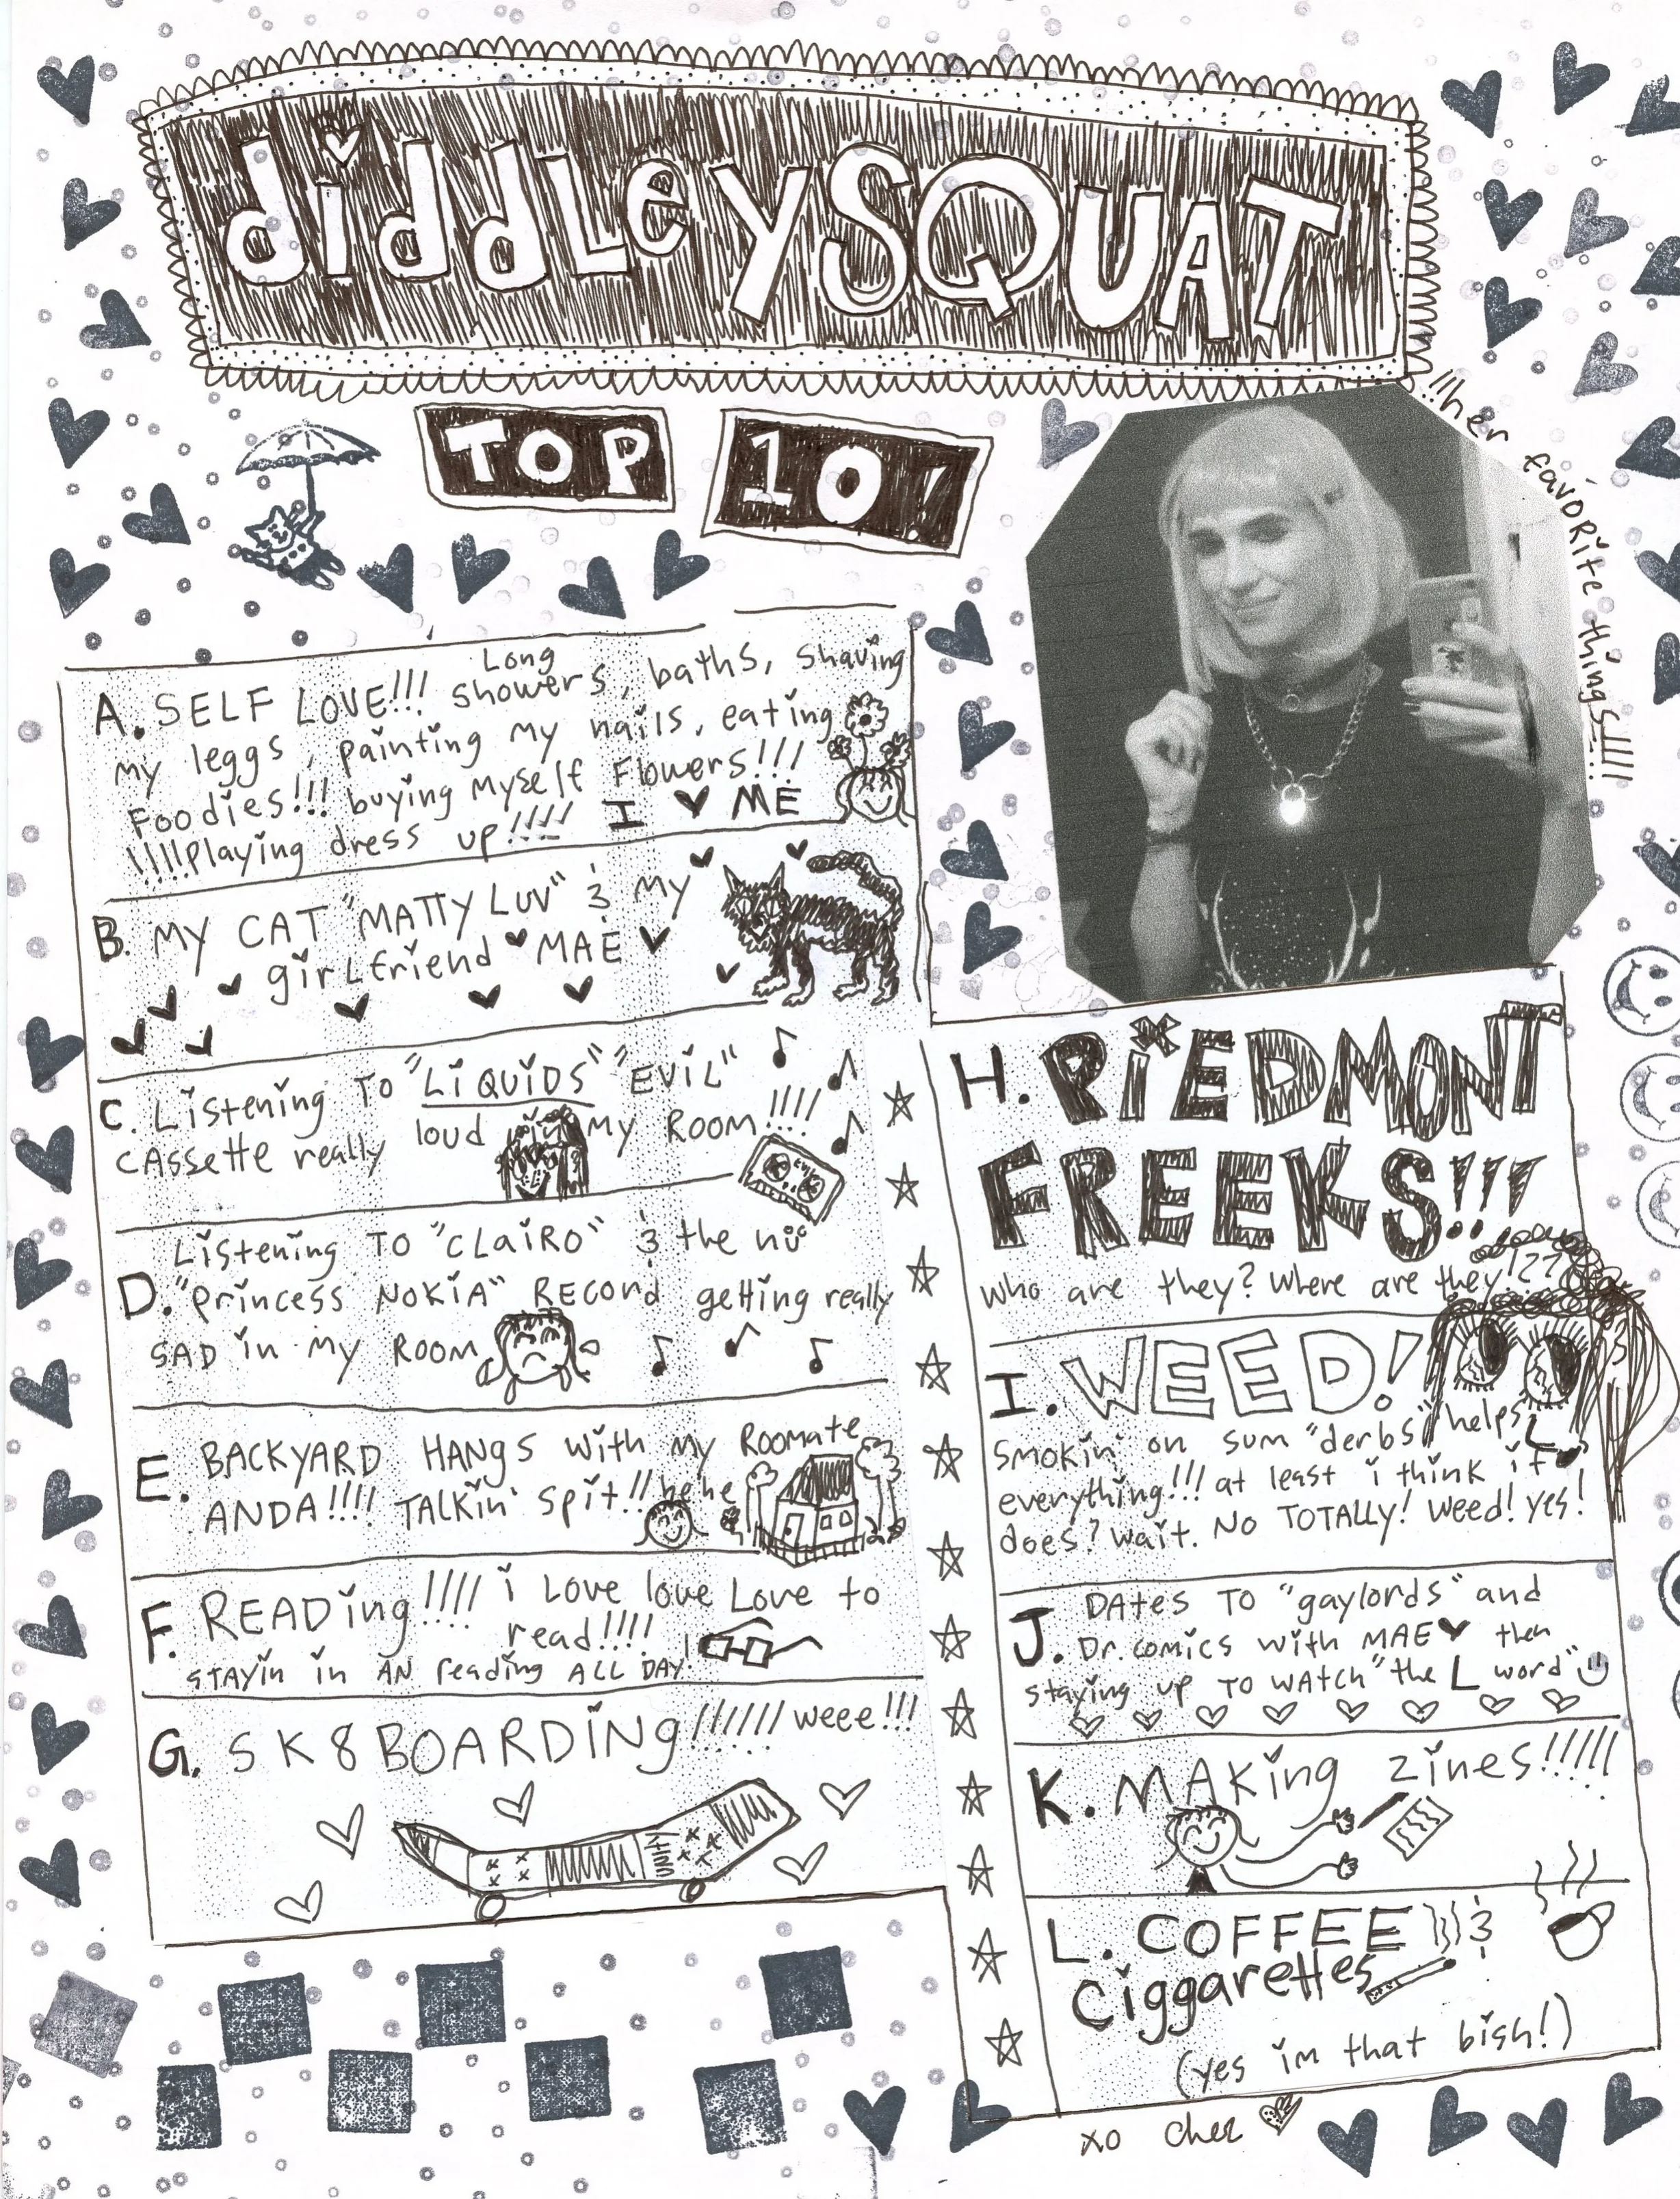 diddLeYSQUAT
TOP 10!
!!!her favoRite things!!!!
A. SELF LOVE!!! Long showers, baths, shaving
my leggs, painting my nails, eating
Foodies!!! buying myself Flowers!!!
!!!!Playing dress up!!!! I ♥ ME
B. MY CAT "MATTY LUV" & My
girLfriend ♥ MAE ♥
C. Listening TO "LiQUiDS" "EViL"
cAssette really loud in my ROOM!!!!
EViL
D. Listening TO "CLAiRO" & the nü
"Princess NOKiA" RECord getting really
SAD in my ROOM
E. BACKYARD HANgs with my Roomate
ANDA!!!! TALKin' spit!! hehe
F. READing!!!! i Love love Love to
read!!!!
STAYin in AN reading ALL DAY!
G. SK8BOARDiNg!!!!!! weee!!!
H. PiEDMONT
FREEKS!!!
who are they? Where are they!??
I. WEED!
Smokin' on sum "derbs" helps
everything!!! at least i think it
does? wait. No TOTALLY! weed! yes!
J. DAtes TO "gaylords" and
Dr. comics with MAE♥ then
staying up TO WAtCH "the L word"
K. MAKing zines!!!!!
L. COFFEE &
Ciggarettes
(yes im that bish!)
xo cher